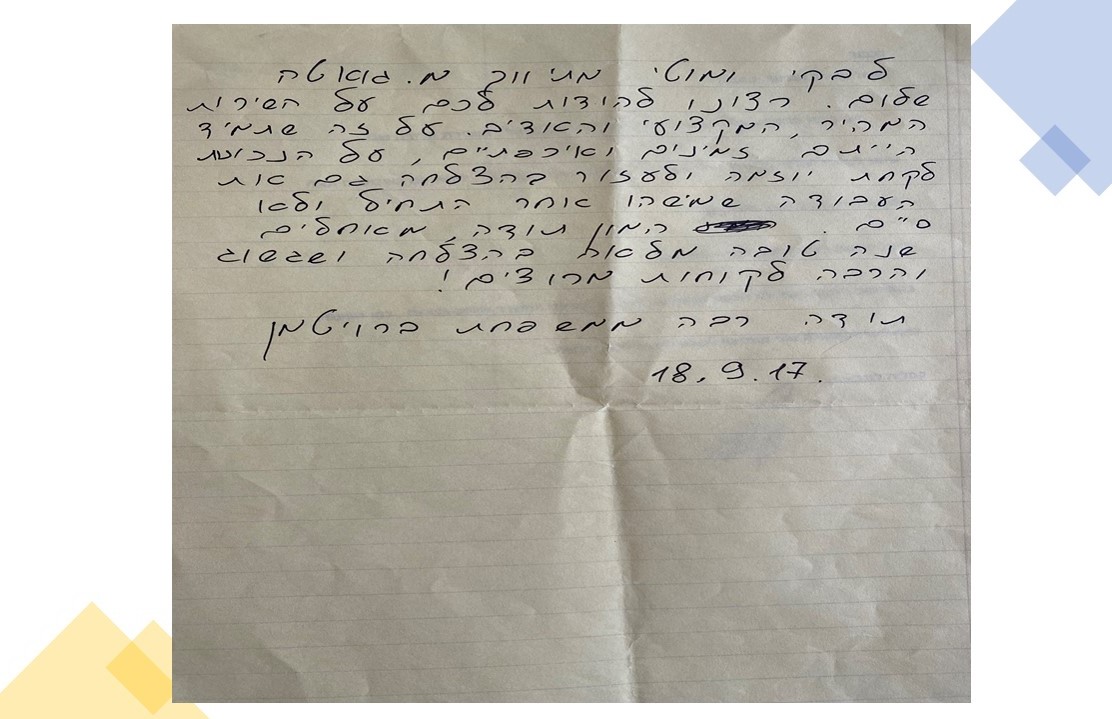 לבקי ומוטי מתיווך מ. גואטה
שלום. רצונו להודות לכם על השירות
המהיר, המקצועי והאדיב. על זה שתמיד
הייתם זמינים ואיכפתיים, על הנכונות
לקחת יוזמה ולעזור בהצלחה גם את
העבודה שמישהו אחר התחיל ולא
סיים. המון תודה, מאוחלים
שנה טובה מלאת בהצלחה ושגשוג
והרבה לקוחות מרוצים!
תודה רבה ממשפחת ברויטמן
18.9.17.